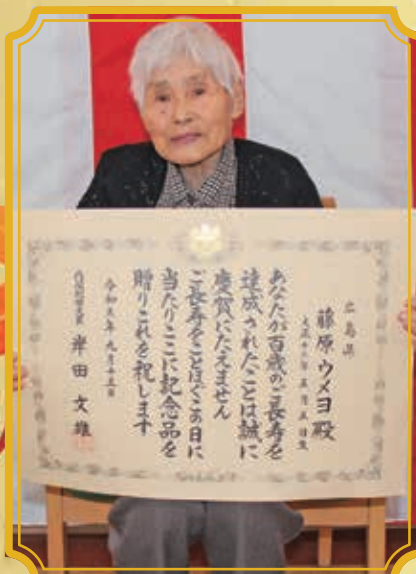 広島県
藤原ウメヨ殿
大正十二年五月五日生
あなたが百歳のご長寿を
達成されたことは誠に
慶賀にたえません
ご長寿をことほぐこの日に
当たりここに記念品を
贈りこれを祝します
令和五年九月十五日
内閣総理大臣 岸田文雄